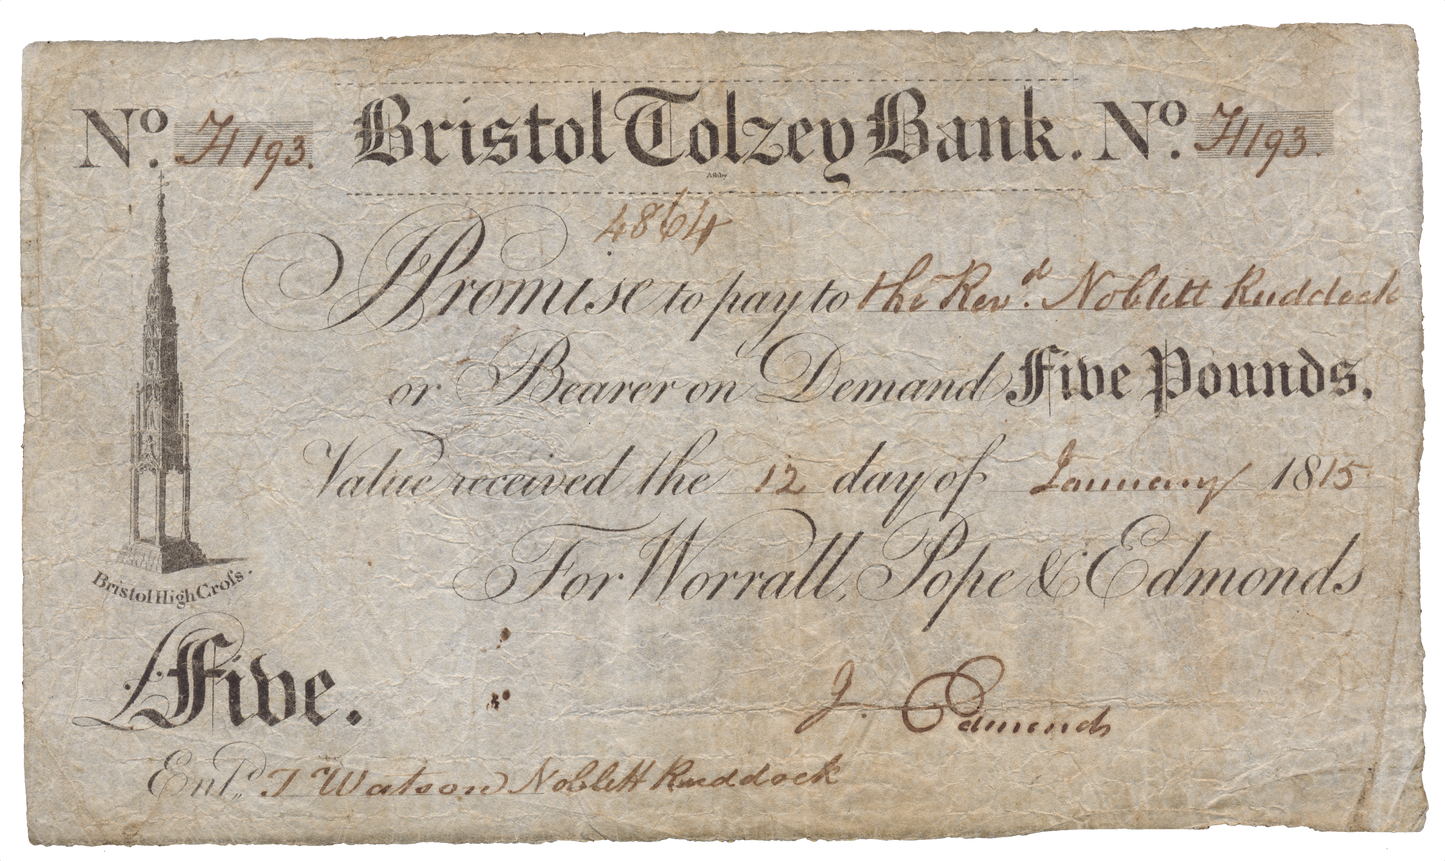 No. H193. Bristol Tolzey Bank. No. H193.
Ashby
4864
I Promise to pay to the Revd. Noblett Ruddock
or Bearer on Demand Five Pounds.
Value received the 12 day of January 1815
For Worrall, Pope & Edmonds
Bristol High Croſs.
£Five.
J. Edmonds
Entd. T Watson Noblett Ruddock